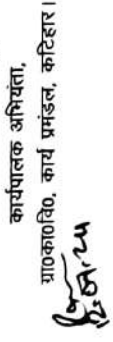 कार्यपालक अभियंता,
ग्रा०का०वि०, कार्य प्रमंडल, कटिहार।